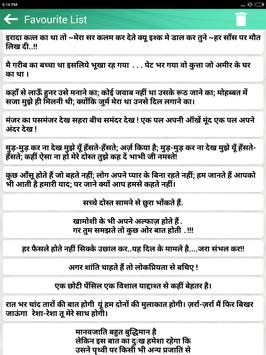 5:16 PM
Favourite List
इरादा कत्ल का था तो ~मेरा सर कलम कर देते क्यू इश्क मे डाल कर तुने ~हर साँस पर मौत
लिख दी..!!
मै गरीब का बच्चा था इसलिये भूखा रह गया ... पेट भर गया वो कुत्ता जो अमीर के घर
का था।
कहाँ से लाऊँ हुनर उसे मनाने का; कोई जवाब नहीं था उसके रूठ जाने का; मोहब्बत में
सजा मुझे ही मिलनी थी; क्योंकि जुर्म मेरा था उनसे दिल लगाने का।
मंजर का पसमंजर देख सहरा बीच समंदर देख ! एक पल अपनी आँखें मूंद एक पल अपने
अंदर देख !
मुड़-मुड़ कर ना देख मुझे यूँ हँसते-हँसते; अर्ज़ किया है; मुड़-मुड़ कर ना देख मुझे यूँ हँसते-
हँसते; कहीं ऐसा ना हो मेरे दोस्त तुझे कह दे भाभी जी नमस्ते!
कुछ आँसू होते हैं जो बहते नहीं; लोग अपने प्यार के बिना रहते नहीं; हम जानते हैं आपको
भी आती है हमारी याद; पर जाने क्यों आप हमसे कहते नहीं।
सच्चे दोस्त सामने से छुरा भोंकते हैं.
खामोशी के भी अपने अल्फाज़ होते हैं .
गर तुम समझते तो कुछ और बात होती . !!!
हर फैसले होते नहीं सिक्के उछाल कर..यह दिल के मामले है....जरा संभल कर!!
अगर शांति चाहते हैं तो लोकप्रियता से बचिए।
एक छोटी पेंसिल एक विशाल याद्दाश्त से कहीं बेहतर है।
रात भर चांद तारों की बात होगी यूं हम दोनों की मुलाकात होगी। ज़र्रा-ज़र्रा मैं फिर बिखर
जाऊंगा रेशा-रेशा तू मेरे साथ होगी।
मानवजाति बहुत बुद्धिमान है
लेकिन इस बात का दुःख हमेशा रहेगा कि
उसने पृथ्वी पर किसी भी अन्य प्रजाति से